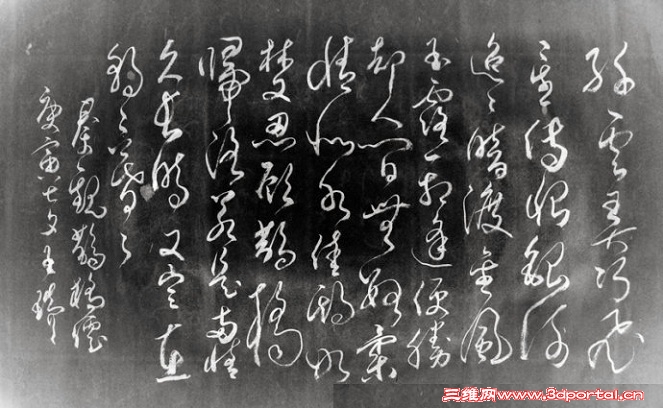 纖雲弄巧飛
星傳恨銀河
迢迢暗渡金風
玉露一相逢便勝
却人間無數柔
情似水佳期如
夢忍顧鵲橋
歸路若是兩情
久長時又豈在
朝朝暮暮
秦觀鵲橋仙
庚寅七夕王
三维网www.3dportal.cn